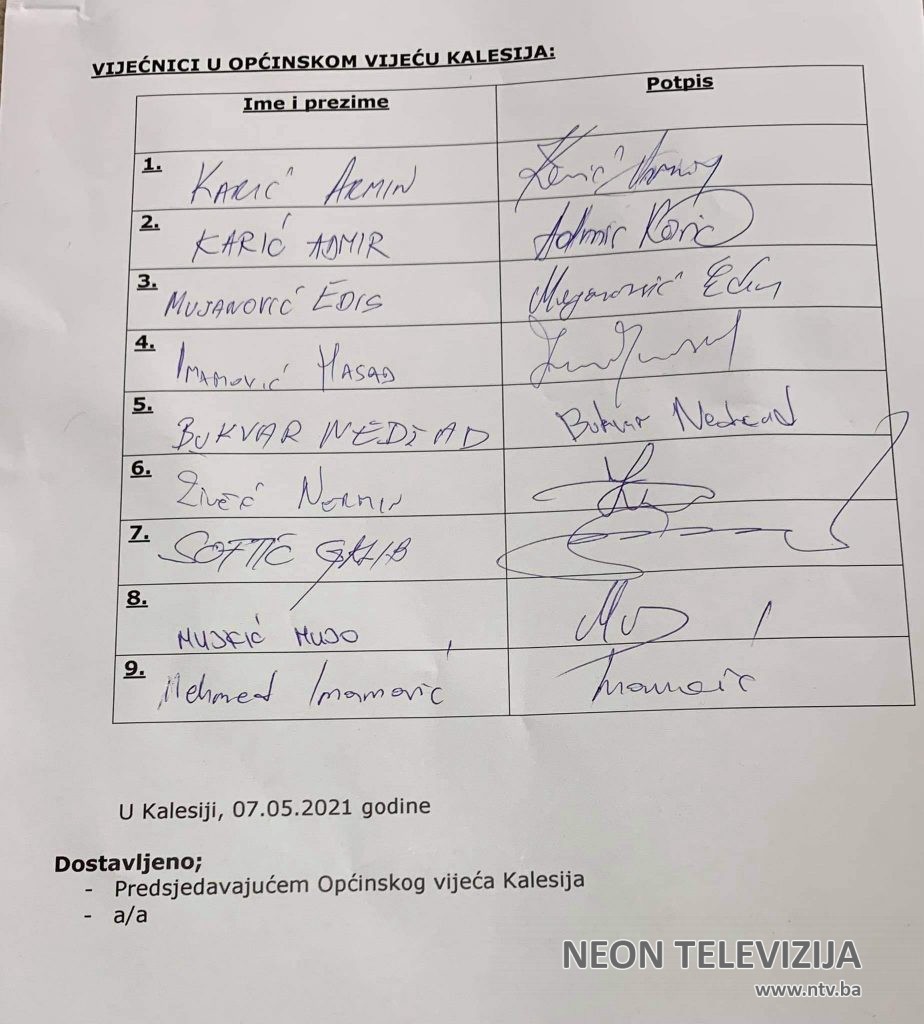 VIJEĆNICI U OPĆINSKOM VIJEĆU KALESIJA:
Ime i prezime Potpis
1. KARIĆ ARMIN Karić Armin
2. KARIĆ ADMIR Admir Karić
3. MUJANOVIĆ EDIS Mujanović Edis
4. IMAMOVIĆ HASAD
5. BUKVAR NEDŽAD Bukvar Nedžad
6. ŽIVČIĆ NERMIN
7. SOFTIĆ GALIB
8. MUJKIĆ MUJO
9. Mehmed Imamovic Imamovic
U Kalesiji, 07.05.2021 godine
Dostavljeno;
- Predsjedavajućem Općinskog vijeća Kalesija
- a/a
NEON TELEVIZIJA
www.ntv.ba